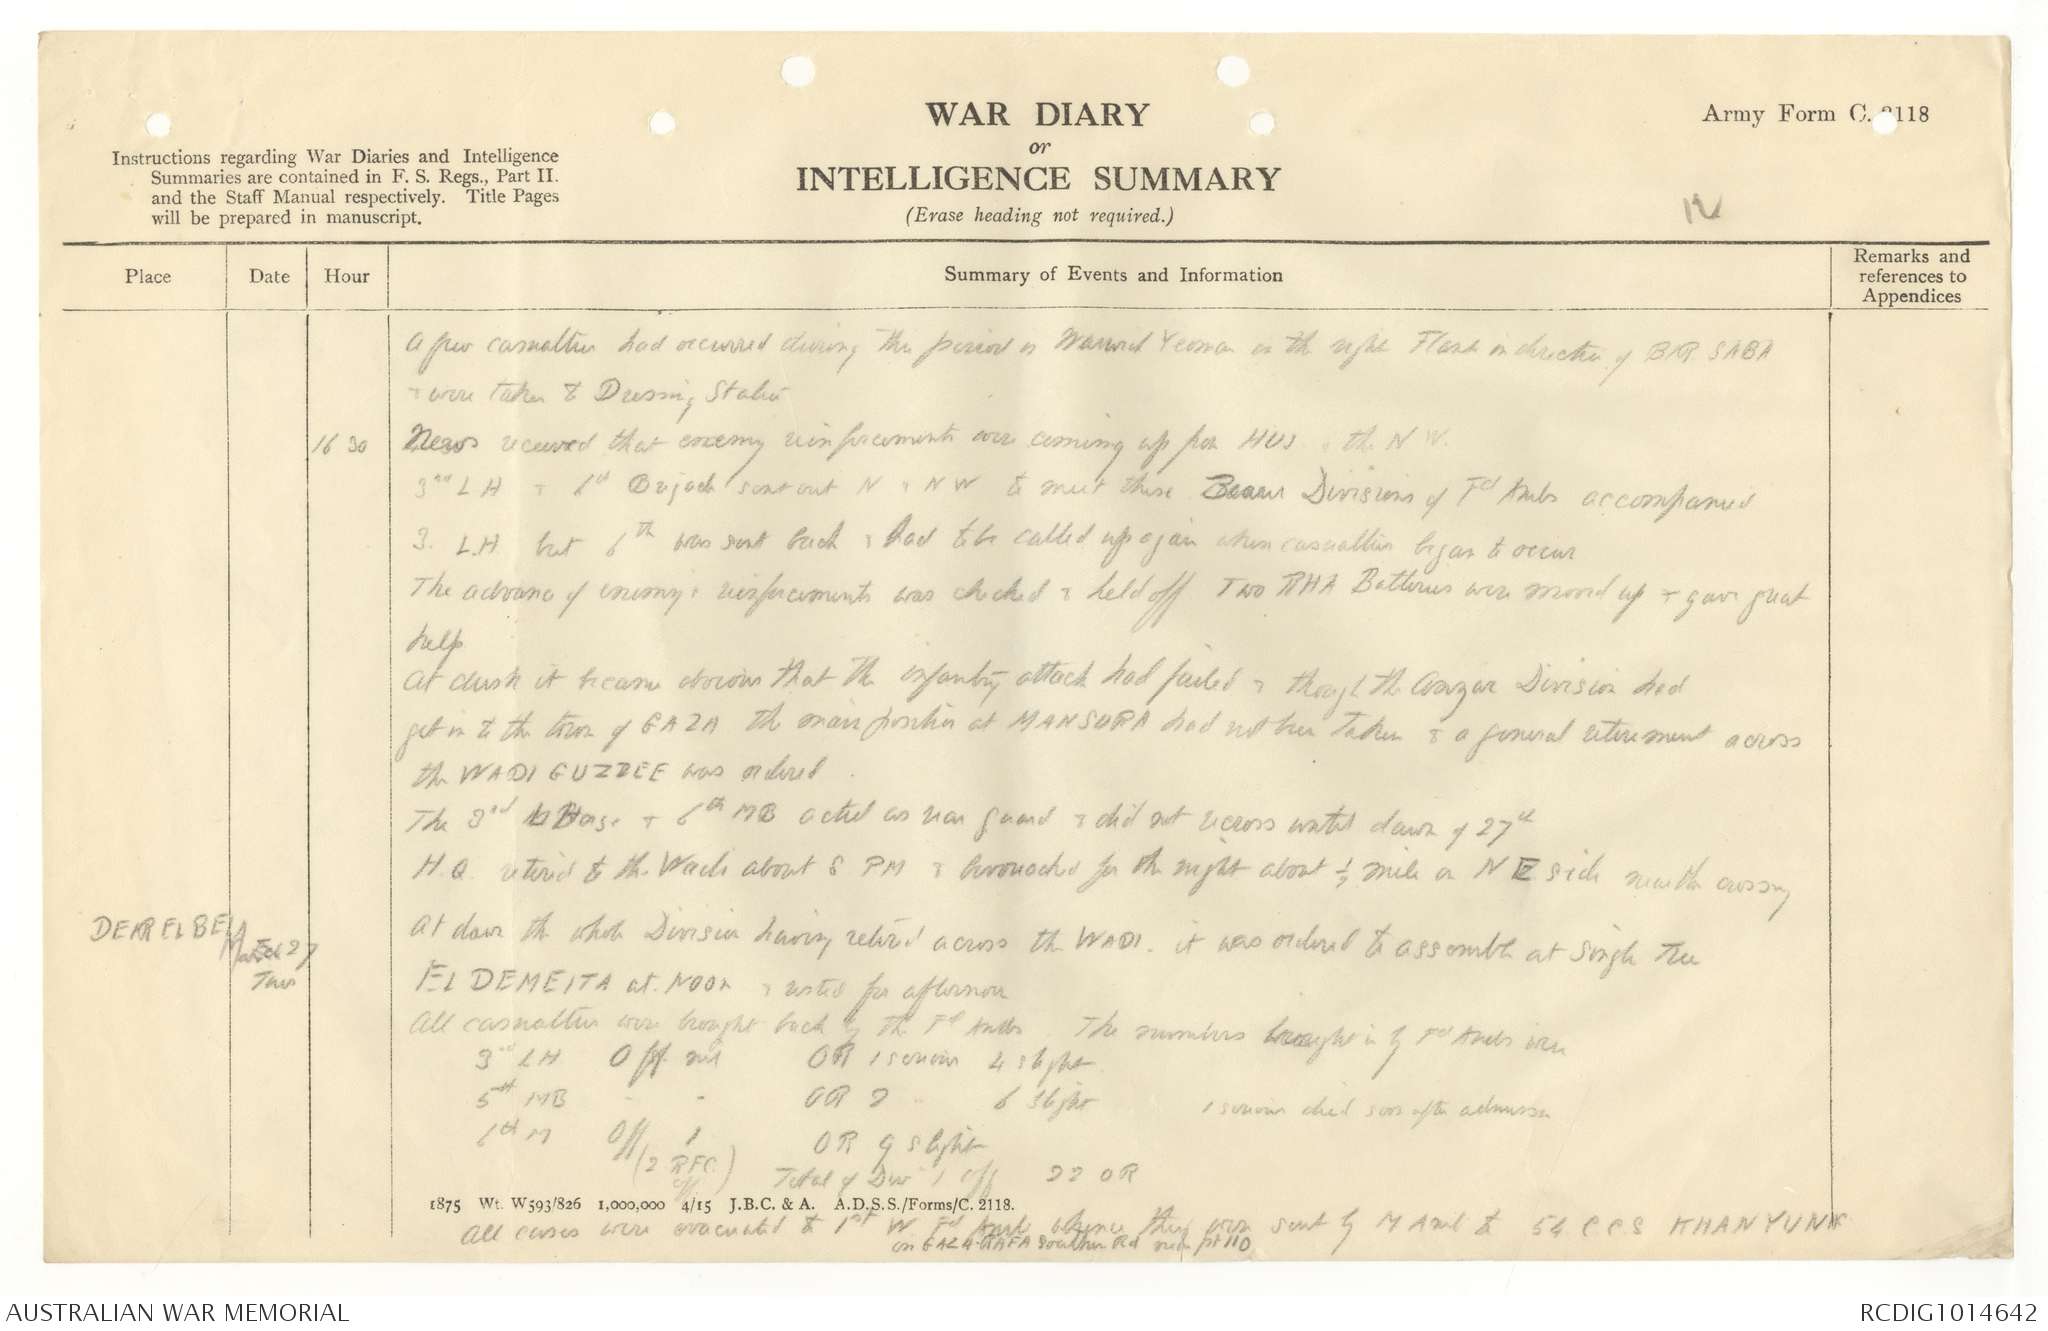 WAR DIARY
or
INTELLIGENCE SUMMARY
(Erase heading not required.)
Army Form C. 2118
Instructions regarding War Diaries and Intelligence
Summaries are contained in F. S. Regs., Part II.
and the Staff Manual respectively. Title Pages
will be prepared in manuscript.
Place
Date
Hour
Summary of Events and Information
Remarks and
references to
Appendices
A few casualties had occurred during this period in Yeoman on the right Flank in direction of BIR SABA
& were taken to Dressing Station
16 30 News received that enemy reinforcements were coming up from HUJ & the N W.
3rd L H & 6th Brigade sent out N & N W to meet these Bearer Divisions of Fd Ambs accompanied
3. L.H but 6th was sent back & had to be called up again when casualties began to occur
The advance of enemy reinforcements was checked & held off. Two RHA Batteries were moved up & gave great
help
At dusk it became obvious that the infantry attack had failed & though the Anzac Division had
got in to the town of GAZA the main position at MANSURA had not been taken & a general retirement across
the WADI GUZZEE was ordered.
The 3rd L Horse & 6th MB acted as rear guard & did not recross until dawn of 27th
H.Q. retired to the Wadi about 8 PM & bivouacked for the night about ½ mile on N E side near the crossing
DEIR EL BELA
March 27
Tues
At dawn the whole Division having retired across the WADI. it was ordered to assemble at Single Tree
EL DEMEITA at NOON & rested for afternoon
All casualties were brought back by the Fd Ambs. The numbers brought in by Fd Ambs were
3rd LH Off nil OR 1 serious 4 slight
5th MB - - OR 2 " 6 slight 1 serious died soon after admission
6th M Off 1 OR 9 slight
(2 RFC off) Total of Div 1 Off 22 OR
1875 Wt. W593/826 1,000,000 4/15 J.B.C. & A. A.D.S.S./Forms/C. 2118.
All cases were evacuated to 1st W Fd Amb whence they were sent by M Amb to 54 C C S KHAN YUNIS
on GAZA-RAFA Southern Rd near pt 110
AUSTRALIAN WAR MEMORIAL
RCDIG1014642